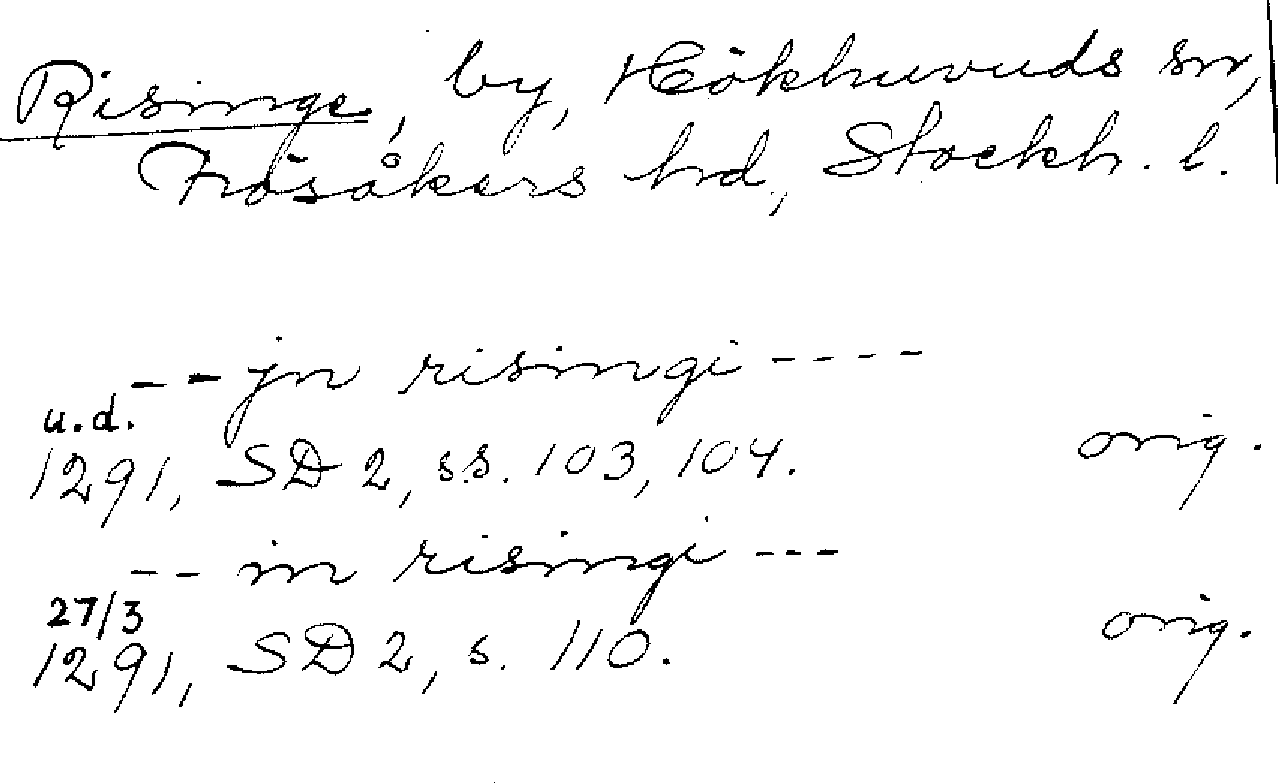 Risinge, by, Hökhuvuds sn,
Frösåkers hd, Stockh. l.
-- jn risingi ----
u.d.
1291, SD 2, s.s. 103, 104. orig.
-- in risingi ---
27/3
1291, SD 2, s. 110. orig.